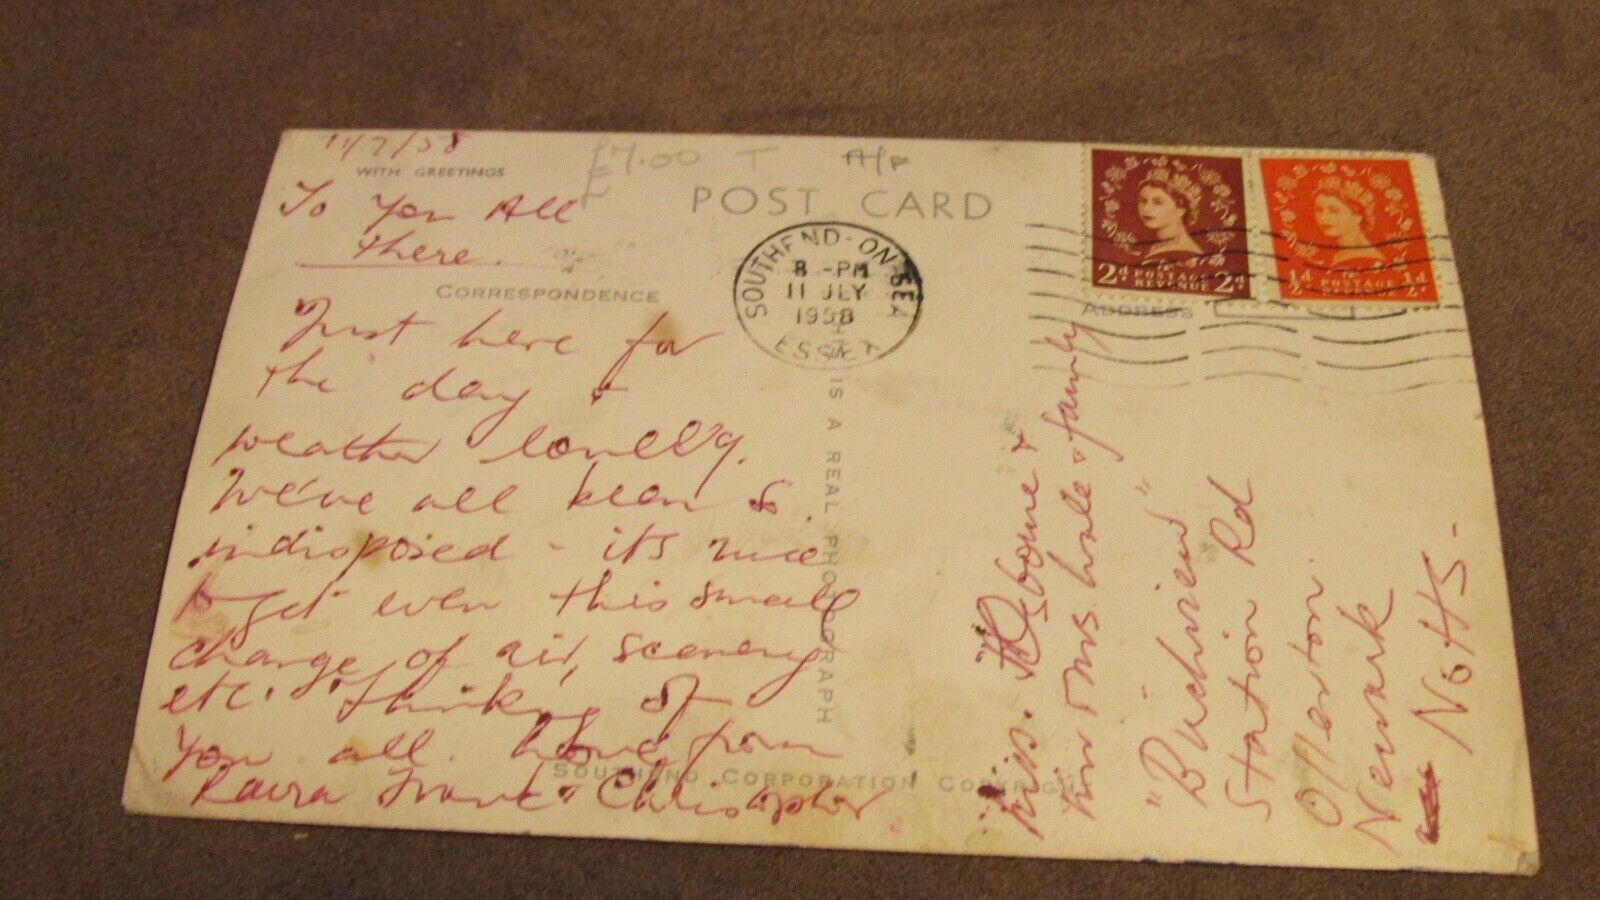 11/7/58
WITH GREETINGS
£7.00 T A/F
POST CARD
To You All
there.
CORRESPONDENCE
Just here for
the day +
weather lovely.
We've all been so
indisposed - its nice
to get even this small
change of air, scenery
etc. Thinking of
you all. Love from
Frank & Christopher
SOUTHEND-ON-SEA
8 -PM
11 JLY
1958
ESSEX
THIS IS A REAL PHOTOGRAPH
SOUTHEND CORPORATION COPYRIGHT
2D POSTAGE REVENUE 2D
½D POSTAGE REVENUE ½D
ADDRESS
Miss. Osborne +
Mr + Mrs Hale & family
"Birchview"
Station Rd
Ollerton.
Newark
Notts-